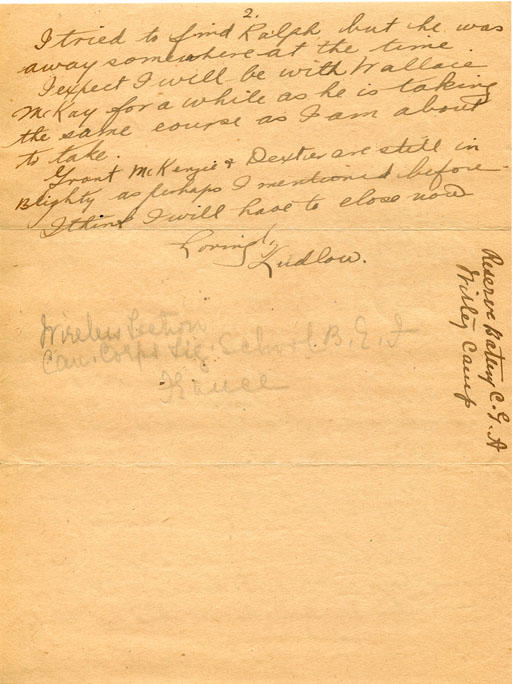 2.
I tried to find Ralph but he was
away somewhere at the time.
I expect I will be with Wallace
McKay for a while as he is taking
the same course as I am about
to take.
Grant McKenzie & Dexter are still in
Blighty as perhaps I mentioned before.
I think I will have to close now
Lovingly,
Ludlow.
Wireless Section
Can. Corps Sig. School B. E. F
France
Reserve Battery C. G. A
Witley Camp